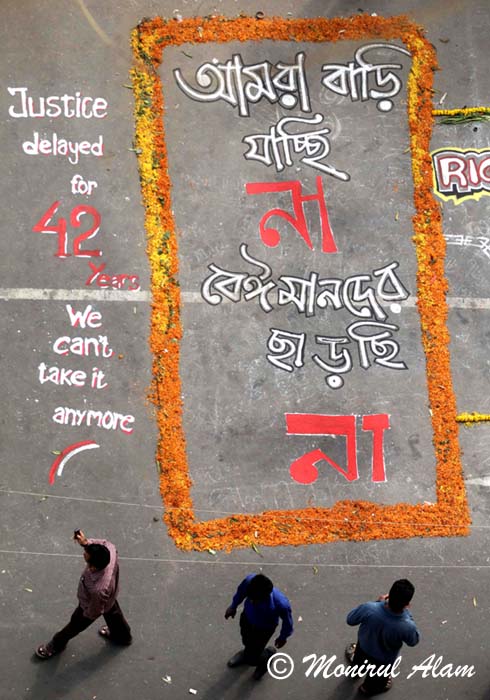 Justice
delayed
for
42
Years
We
can't
take it
anymore
আমরা বাড়ি
যাচ্ছি
না
বেঈমানদের
ছাড়ছি
না
RIG
© Monirul Alam